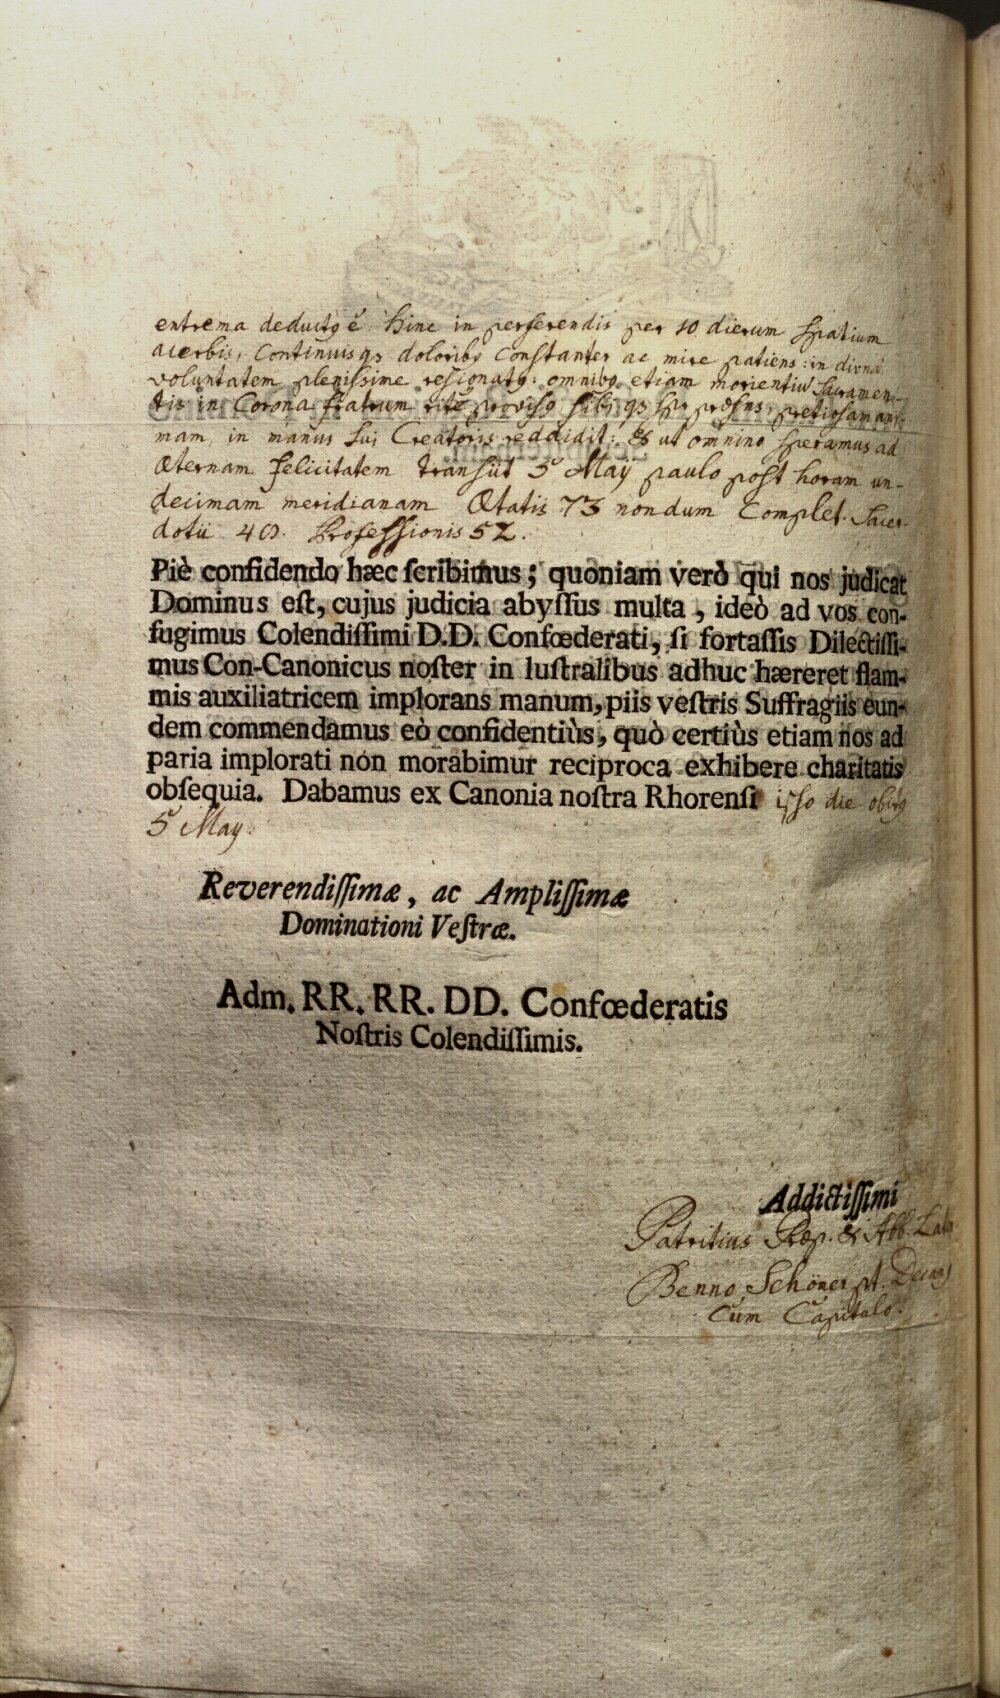 extrema deductꝰ ē. Hinc in perferendis per 10 dierum spatium
acerbis, continuisqꝫ doloribꝰ constanter ac mire patiens: in divnā
voluntatem plenissime resignatꝰ: omnibꝰ etiam morientiū Sacramen-
tis in Corona fratrum rite provisꝰ sibiqꝫ præsens, pretiosam ani-
mam, in manus sui Creatoris reddidit: & ut omnino speramus ad
Æternam felicitatem transiit 5 May paulo post horam un-
decimam meridianam Ætatis 73 nondum complet. Sacer-
dotii Professionis 52.
Piè confidendo hæc ſcribimus; quoniam verò qui nos judicat
Dominus eſt, cujus judicia abyſſus multa, ideò ad vos con-
fugimus Colendiſſimi D.D. Confœderati, ſi fortaſſis Dilectiſſi-
mus Con-Canonicus noſter in luſtralibus adhuc hæreret flam-
mis auxiliatricem implorans manum, piis veſtris Suffragiis eun-
dem commendamus eò confidentiùs, quò certiùs etiam nos ad
paria implorati non morabimur reciproca exhibere charitatis
obſequia. Dabamus ex Canonia noſtra Rhorenſi ipso die obitꝰ
5 May.
Reverendiſſimæ, ac Ampliſſimæ
Dominationi Veſtræ.
Adm. RR. RR. DD. Confœderatis
Noſtris Colendiſſimis.
Addictiſſimi
Patritius Præp. & Abb. Lat
Benno Schöner p.t. Decanꝰ
Cum Capitulo.